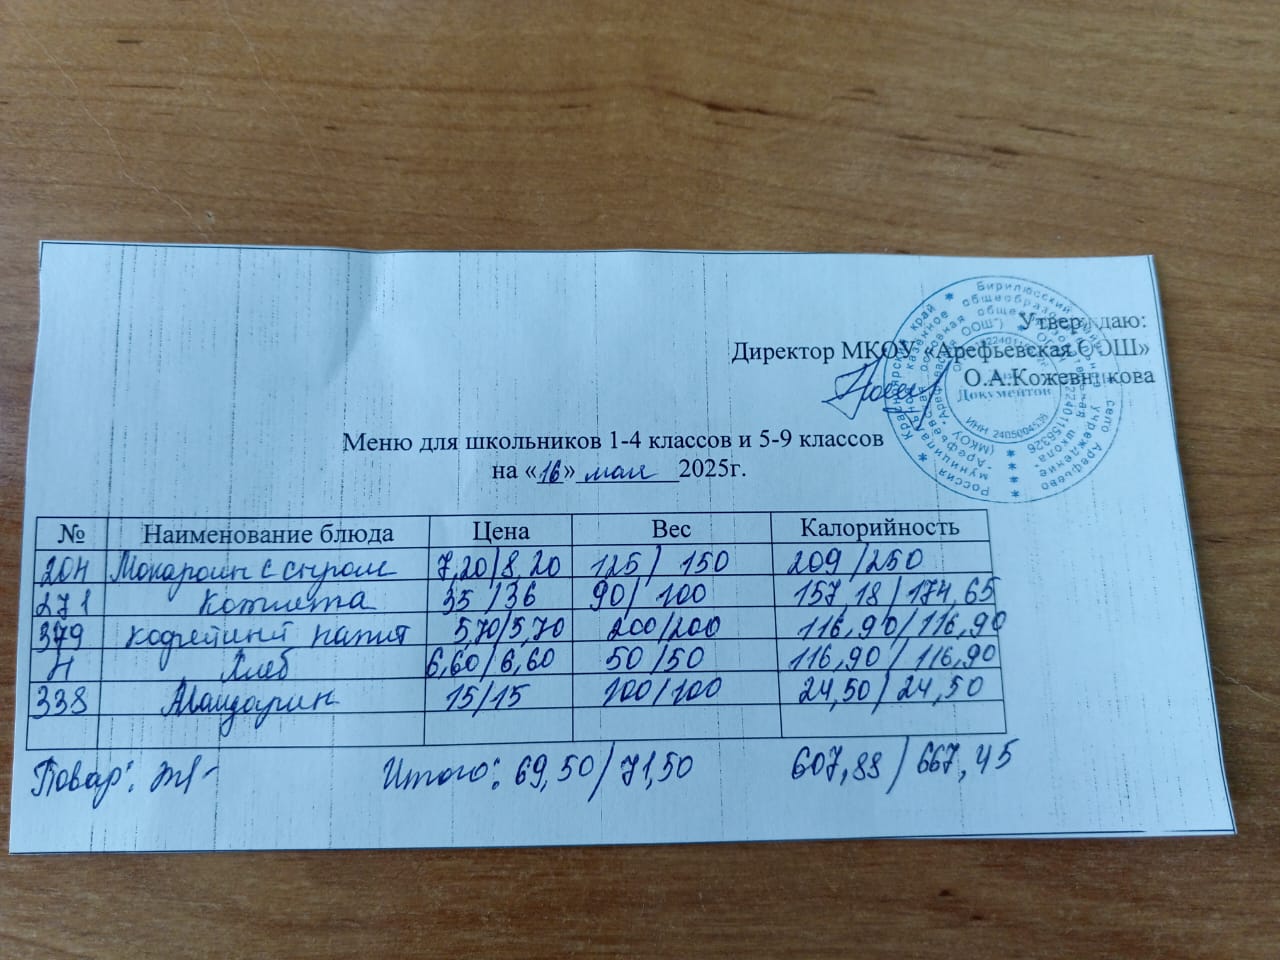 Утверждаю:
Директор МКОУ «Арефьевская ООШ»
О.А.Кожевникова
Документов
ИНН 2405004536
Меню для школьников 1-4 классов и 5-9 классов
на «16» мая 2025г.
№ Наименование блюда Цена Вес Калорийность
204 Макароны с сыром 7,20/8,20 125/150 209/250
271 Котлета 35/36 90/100 157,18/174,65
379 кофейный напит 5,70/5,70 200/200 116,90/116,90
Н Хлеб 6,60/6,60 50/50 116,90/116,90
338 Мандарин 15/15 100/100 24,50/24,50
Повар: Итого: 69,50/71,50 607,88/667,45